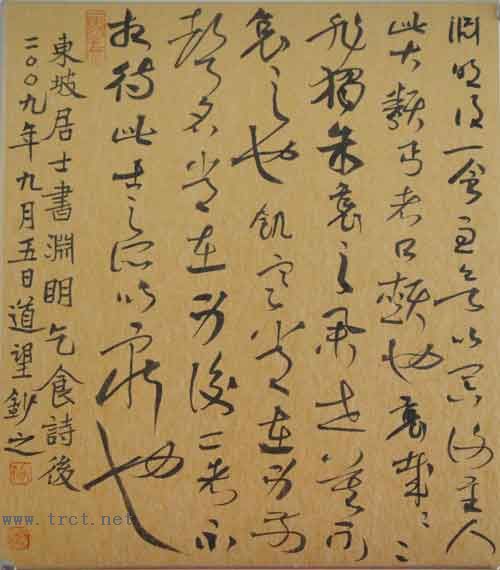 淵明得一食至欲以冥謝主人
此大類丐者口頰也哀哉〻〻
非獨余哀之舉世莫不
哀之也飢寒常在身前
聲名常在身後二者不
相待此士之所以窮也
東坡居士書淵明乞食詩後
二〇〇九年九月五日道望鈔之
www.trct.net